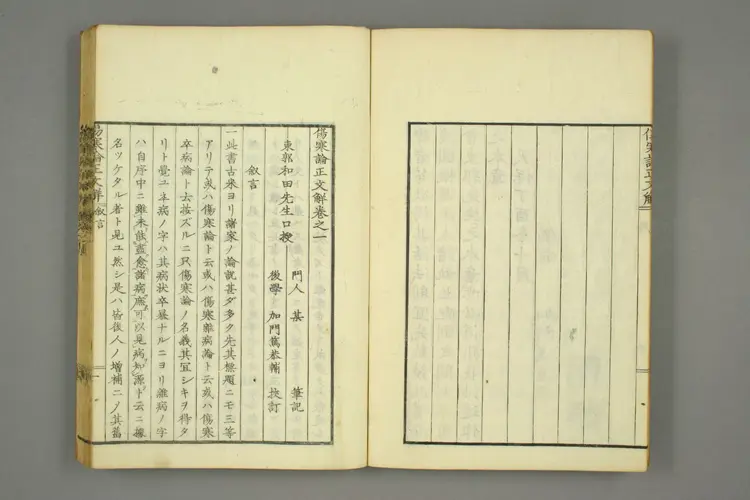 傷寒論正文解
傷寒論正文解卷之一
東郭和田先生口授
門人 某 筆記
後學 加門篤恭輔 挍訂
叙言
一此書古來ヨリ諸家ノ論說甚ダ多ク先其標題ニモ三等
アリテ或ハ傷寒論ト云或ハ傷寒雜病論ト云或ハ傷寒
卒病論ト云按ズルニ只傷寒論ノ名義其宜シキヲ得タ
リト覺ユ子病ノ字ハ其病狀卒暴ナルニヨリ雜病ノ字
ハ自序中ニ雖未能盡愈諸病庶可以見病知源ト云ニ據
名ツケタル者ト見ユ然シ是ハ皆後人ノ增補ニノ其舊
傷寒論正文解 叙言 一